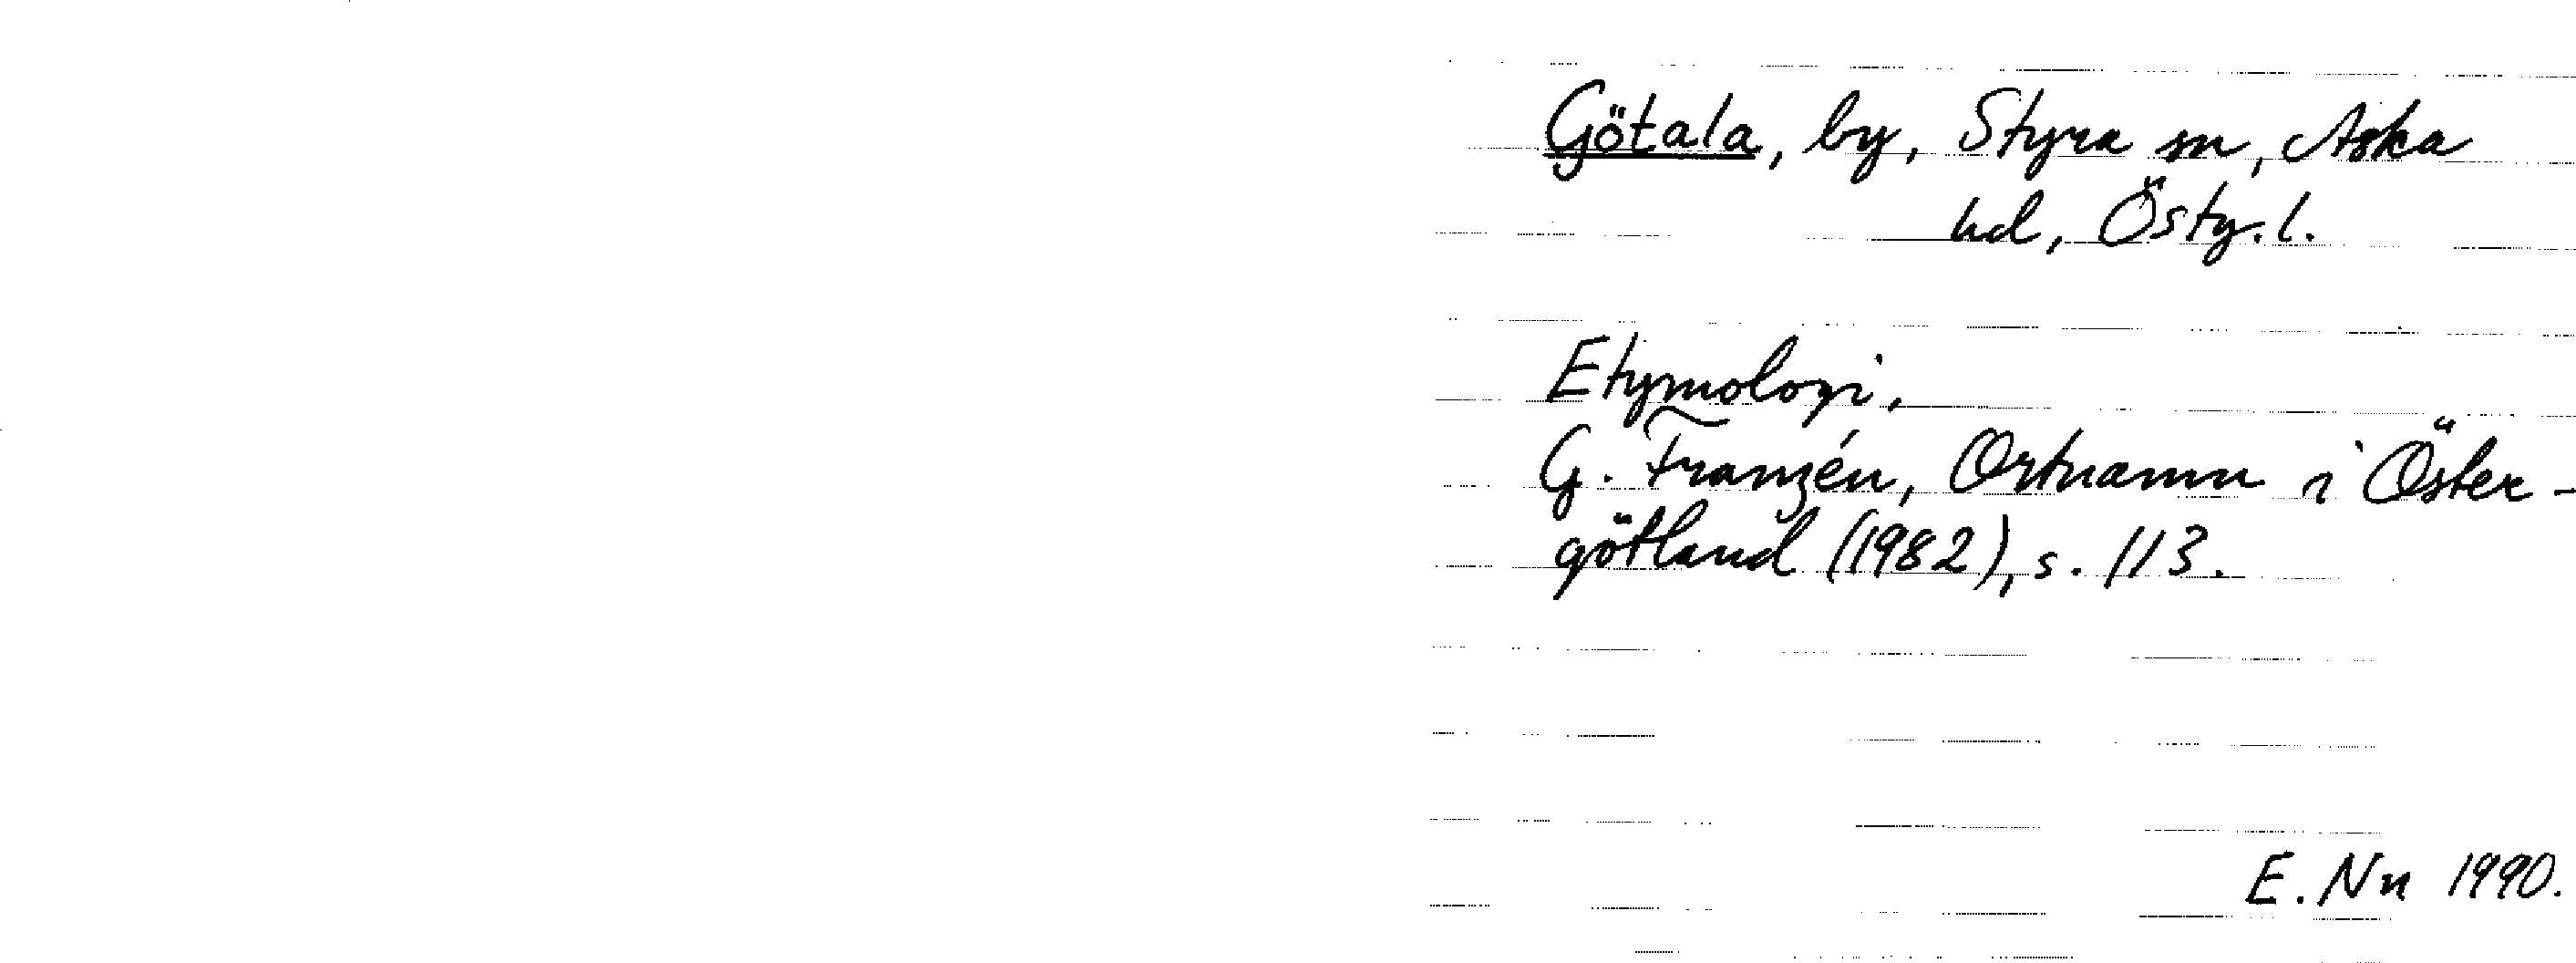 Götala, by, Styra sn, Aska
hd, Östg.l.
Etymologi,
G. Franzén, Ortnamn i Öster-
götland (1982), s. 113.
E. Nn 1990.